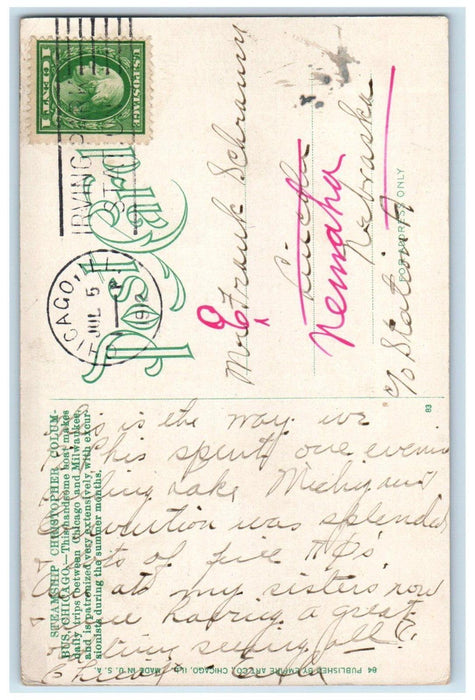 1 CENT 1
U.S. POSTAGE
IRVING PARK
STA.
CHICAGO, ILL
JUL 5
P
192
Post Card
Mr. E. Frank Schramm
Lincoln
Nemaha
Nebraska
c/o Station A
FOR ADDRESS ONLY
83
STEAMSHIP CHRISTOPHER COLUM-
BUS, CHICAGO.—This handsome boat makes
daily trips between Chicago and Milwaukee,
and is patronized very extensively with excur-
sionists during the summer months.
is is the way we
this spent one evening
Lake Michigan
was splendid
of five
at my sisters now
having a great
time seeing all
84 PUBLISHED BY EMPIRE ART CO., CHICAGO, ILL.
MADE IN U. S. A.